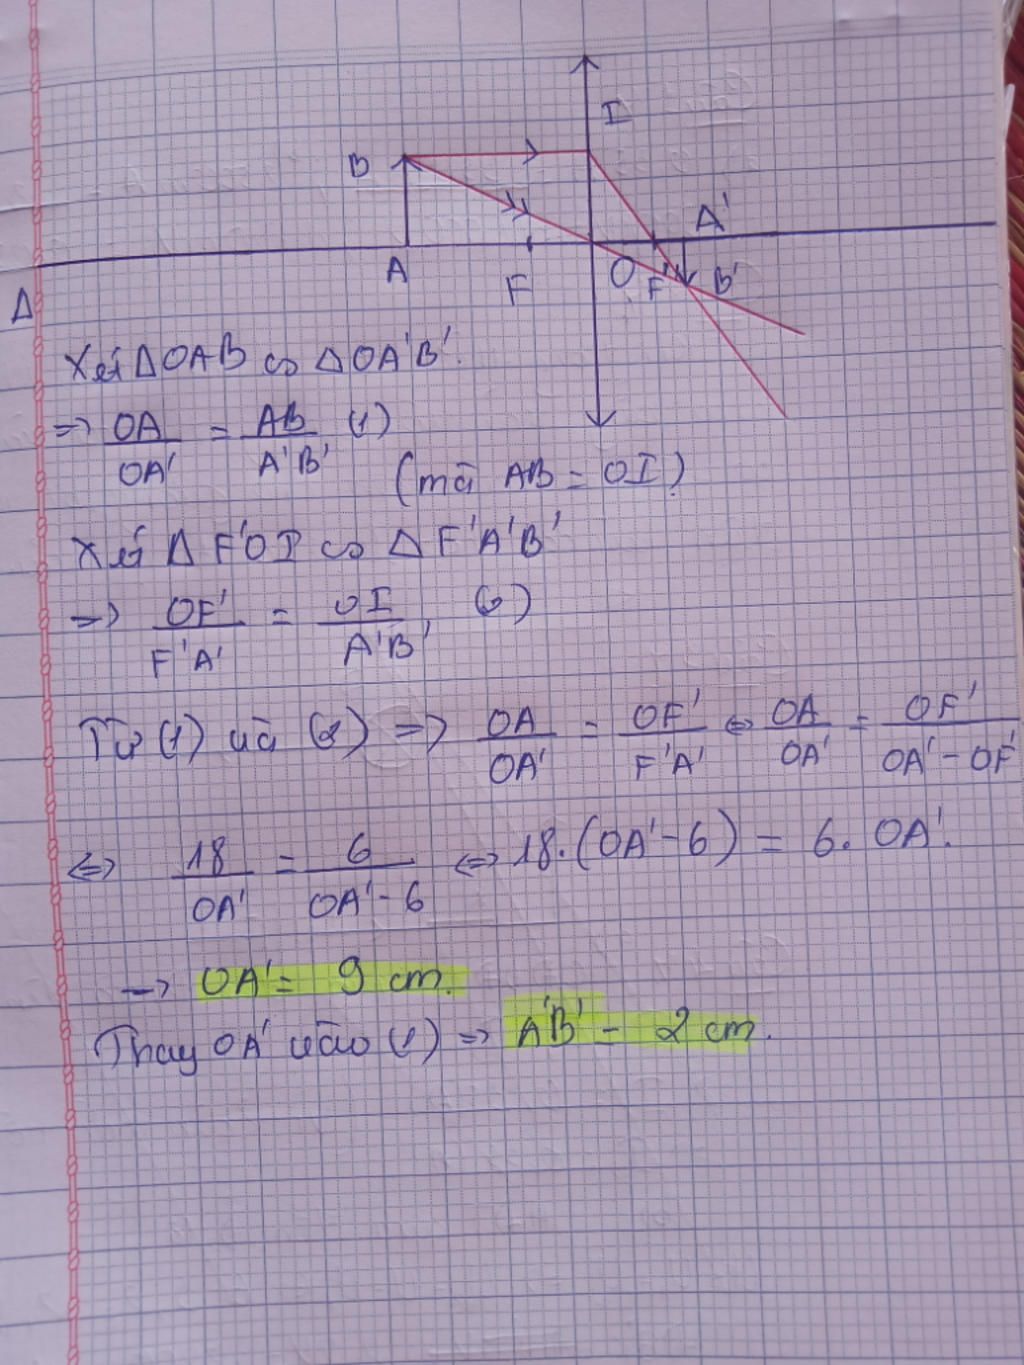 I
B
A'
A
F
O
F'
B'
Δ
Xét ΔOAB ∽ ΔOA'B'.
=> OA/OA' = AB/A'B' (1)
(mà AB = OI)
Xét Δ F'OI ∽ Δ F'A'B'
=> OF'/F'A' = OI/A'B' (2)
Từ (1) và (2) => OA/OA' = OF'/F'A' <=> OA/OA' = OF'/OA' - OF'
<=> 18/OA' = 6/OA' - 6 <=> 18.(OA' - 6) = 6. OA'.
-> OA' = 9 cm.
Thay OA' vào (1) => A'B' = 2 cm.